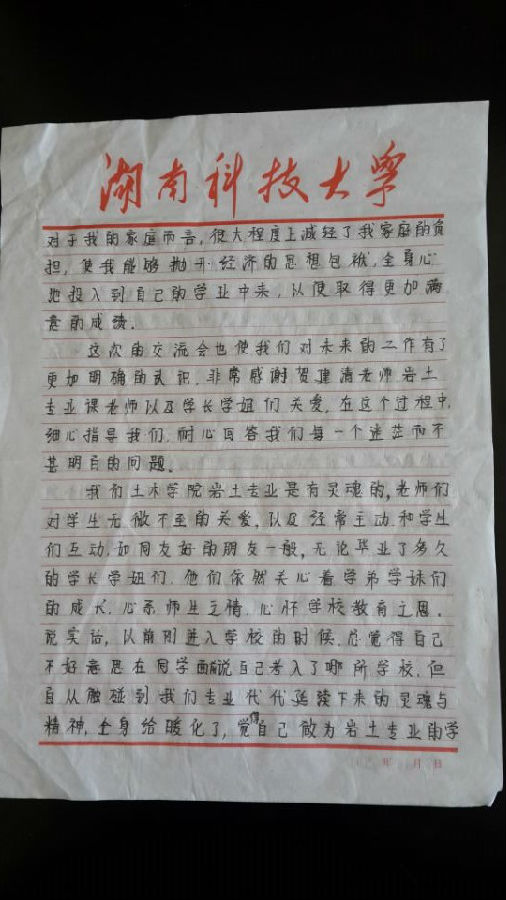 湖南科技大学
对于我的家庭而言，很大程度上减轻了我家庭的负
担，使我能够抛开经济的思想包袱，全身心
地投入到自己的学业中来，以便取得更加满
意的成绩。
这次的交流会也使我们对未来的工作有了
更加明确的认识，非常感谢贺建清老师岩土
专业课老师以及学长学姐们关爱，在这个过程中，
细心指导我们，耐心回答我们每一个迷茫而不
甚明白的问题。
我们土木学院岩土专业是有灵魂的，老师们
对学生无微不至的关爱，以及经常主动和学生
们互动，如同友好的朋友一般，无论毕业了多久
的学长学姐们，他们依然关心着学弟学妹们
的成长，心系师生之情，心怀学校教育之恩。
说实话，以前刚进入学校的时候，总觉得自己
不好意思在同学面前说自己考入了哪所学校，但
自从触碰到我们专业代代延续下来的灵魂与
精神，全身给暖化了，觉得自己做为岩土专业的学
年 月 日